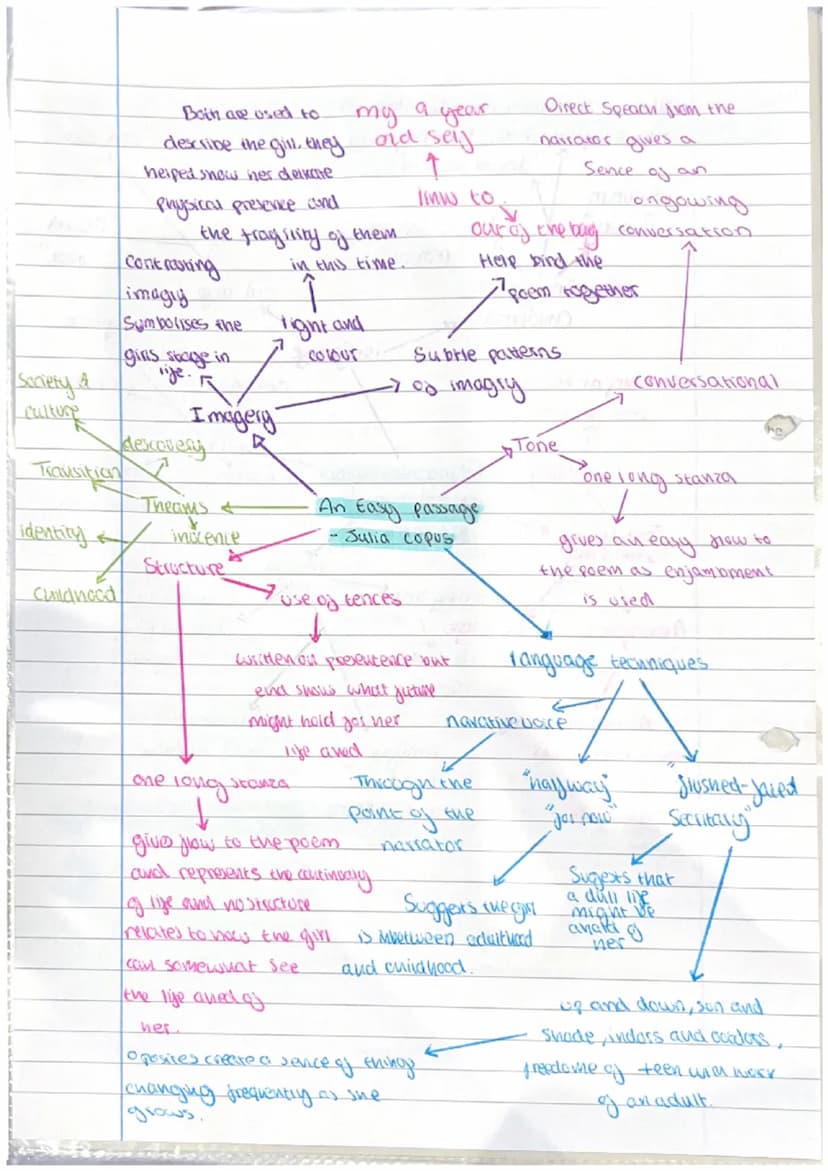 Both are used to
describe the girl, they
helped show her delicate
physical presence and
the fragility of them
in this time.
my 9 year
old self
link to
our of the bag
Direct Speach from the
narrator gives a
Sence of an
ongowing
conversation
Contrasting
imagry
Symbolises the
girls stage in
life.
light and
colour
Help bind the
poem together
Subtle patterns
of imagry
conversational
Society &
culture
Imagery
descovery
Transition
Theams
inocence
identity
Childhood
Tone
one long stanza
gives an easy flow to
the poem as enjambment
is used
An Easy passage
- Julia copus
Structure
use of tences
written in presentence but
end shows what future
might hold for her
life aved
one long stanza
give flow to the poem
and represents the continuety
of life and no structure
relates to how the girl
can somewhat see
the life aved of
her.
Language techniques
narative voice
Through the
point of the
narrator
"halfway"
"for now"
Suggests the girl
is inbetween adulthood
and childhood.
"flushed-faced
Secritary"
Sugests that
a dull life
might be
ahead of
her
up and down, sun and
shade, indors and outdors,
freedome of teen and work
of an adult.
oposites create a sence of things
changing frequently as she
grows.